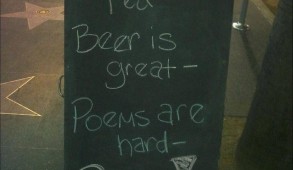 Beer is
great–
Poems are
hard–